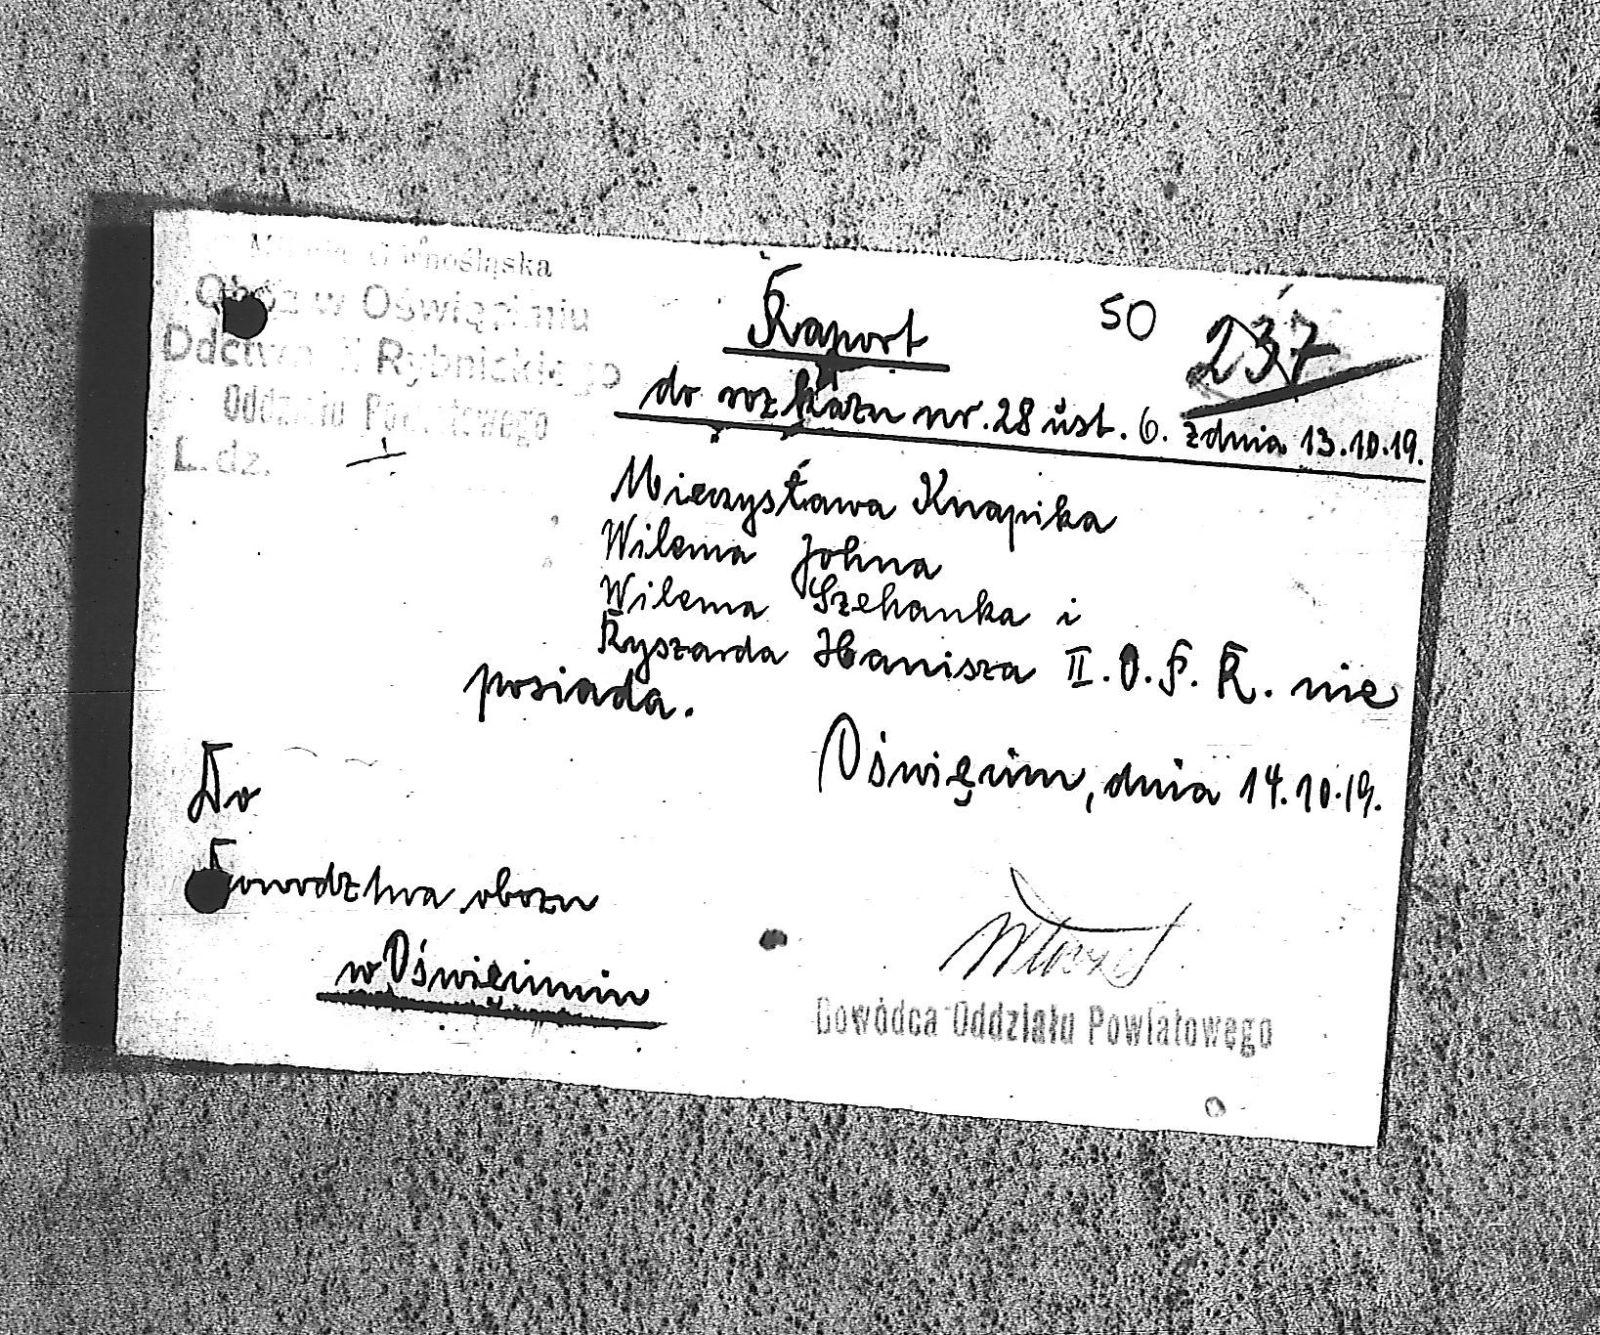 Górnośląska
Obóz w Oświęcimiu
Ddctwo II Rybnickiego
Oddziału Powiatowego
L. dz.
50
237
Raport
do rozkazu nr. 28 ust. 6. z dnia 13.10.19.
Mieczysława Knapika
Wilema Johna
Wilema Czekanka i
Ryszarda Hanisza II. O. P. R. nie
posiada.
Oświęcim, dnia 14.10.19.
Do
Dowodztwa obozu
w Oświęcimiu
Dowódca Oddziału Powiatowego